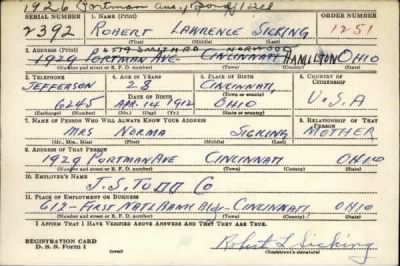 1926 Portman Ave.,
SERIAL NUMBER 1. NAME (Print) ORDER NUMBER
2392 ROBERT LAWRENCE SICKING 1251
(First) (Middle) (Last)
2. ADDRESS (Print) NORWOOD
1929 PORTMAN AVE CINCINNATI HAMILTON OHIO
(Number and street or R. F. D. number) (Town) (County) (State)
3. TELEPHONE 4. AGE IN YEARS 5. PLACE OF BIRTH 6. COUNTRY OF CITIZENSHIP
JEFFERSON 28 CINCINNATI,
DATE OF BIRTH (Town or county)
6245 APR. 14 1912 OHIO U.S.A
(Exchange) (Number) (Mo.) (Day) (Yr.) (State or country)
7. NAME OF PERSON WHO WILL ALWAYS KNOW YOUR ADDRESS 8. RELATIONSHIP OF THAT PERSON
MRS NORMA SICKING MOTHER
(Mr., Mrs., Miss) (First) (Middle) (Last)
9. ADDRESS OF THAT PERSON
1929 PORTMAN AVE CINCINNATI OHIO
(Number and street or R. F. D. number) (Town) (County) (State)
10. EMPLOYER'S NAME
J.S. TODD CO
11. PLACE OF EMPLOYMENT OR BUSINESS
612-FIRST NATL BANK Bldg-CINCINNATI, OHIO
(Number and street or R. F. D. number) (Town) (County) (State)
I AFFIRM THAT I HAVE VERIFIED ABOVE ANSWERS AND THAT THEY ARE TRUE.
REGISTRATION CARD
D. S. S. Form 1 Robert L Sicking
(Registrant's signature)